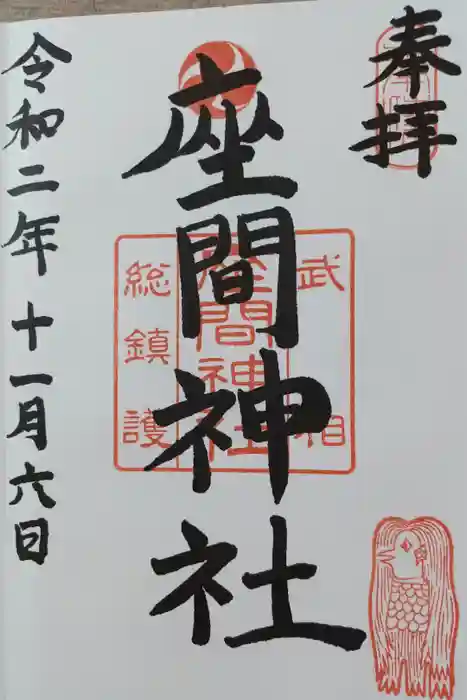 奉拝
座間神社
武相
座間神社
総鎮護
令和二年十一月六日